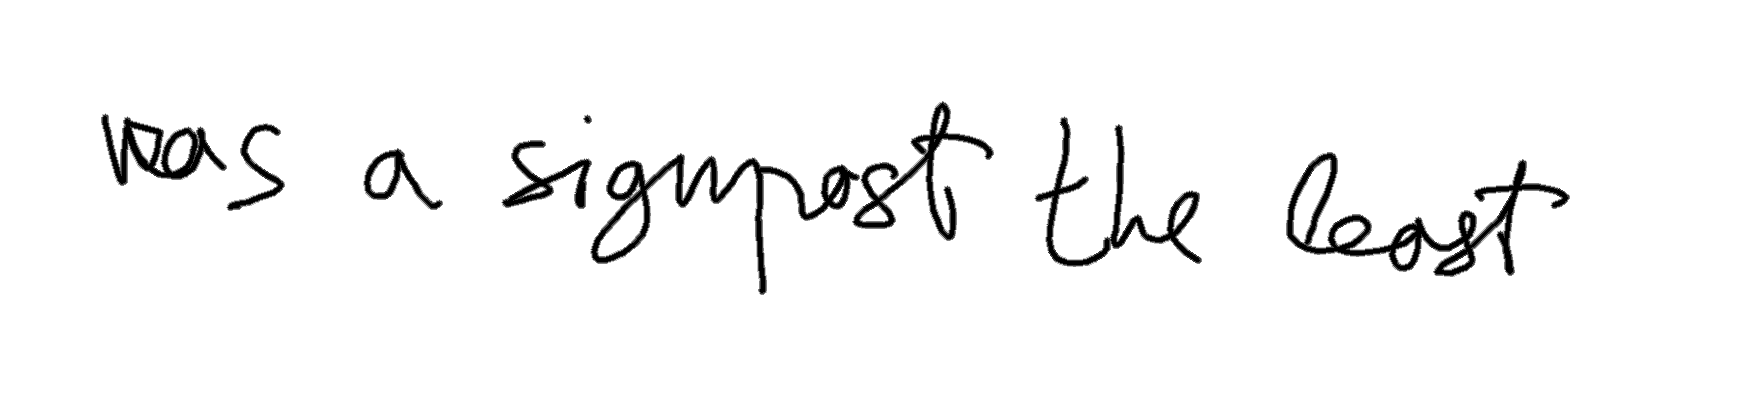 was a signpost the least